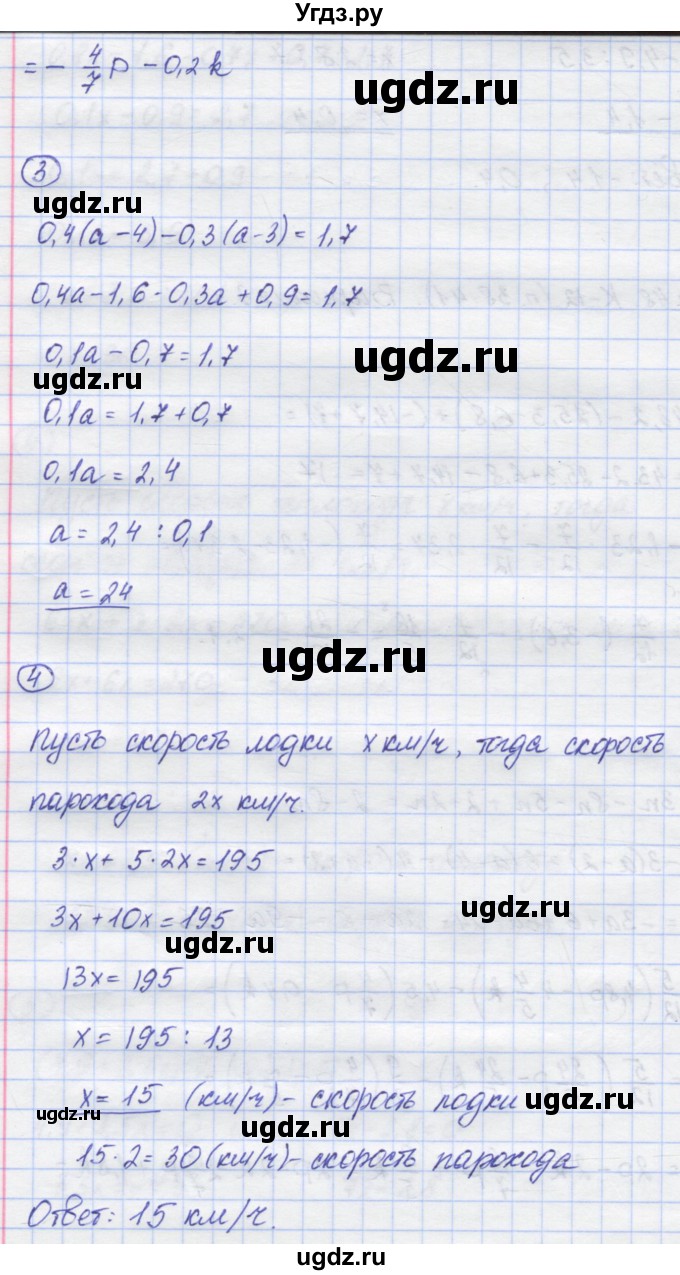 Угдз.ру
= - 4/7 p - 0,2k
ugdz.ru
3
ugdz.ru
0,4(a-4)-0,3(a-3)=1,7
0,4a-1,6-0,3a+0,9=1,7
0,1a-0,7=1,7
ugdz.ru
ugdz.ru
0,1a=1,7+0,7
0,1a=2,4
a=2,4:0,1
a=24
ugdz.ru
4
Пусть скорость лодки x км/ч, тогда скорость
парохода 2x км/ч.
3·x+5·2x=195
3x+10x=195
ugdz.ru
ugdz.ru
13x=195
x=195:13
x=15 (км/ч)- скорость лодки
ugdz.ru
ugdz.ru
ugdz.ru
15·2=30(км/ч)-скорость парохода
Ответ: 15 км/ч.
ugdz.ru